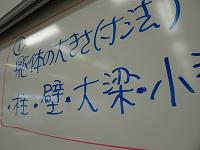 ①
躯体の大きさ(寸法)
・柱・壁・大梁・小